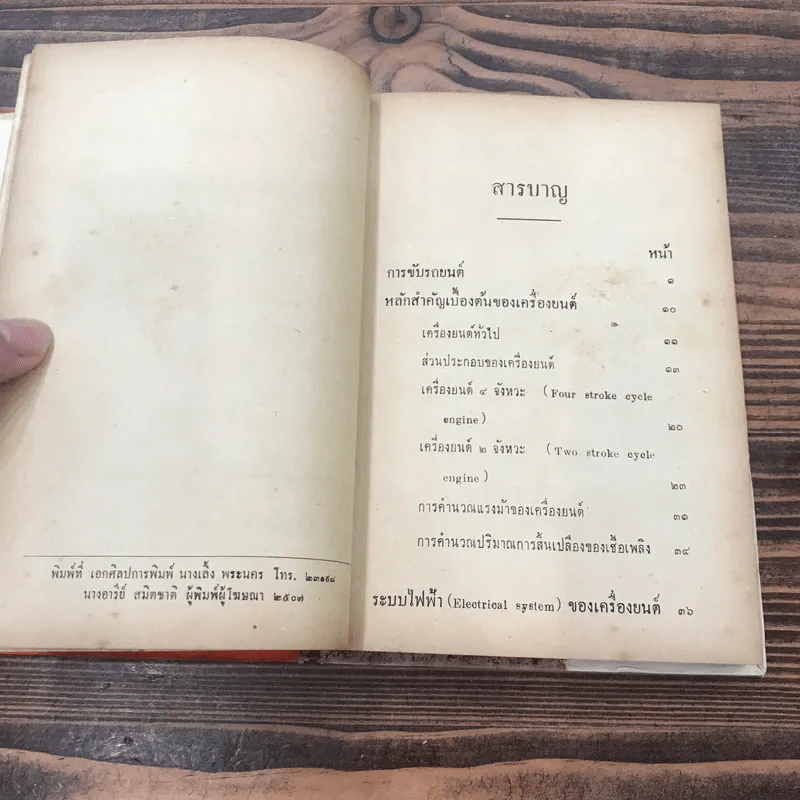 พิมพ์ที่ เอกศิลปการพิมพ์ นางเลิ้ง พระนคร โทร.
นางอารีย์ สมิตชาติ ผู้พิมพ์ผู้โฆษณา ๒๕๐๗
สารบาญ
หน้า
การขับรถยนต์ ๑
หลักสำคัญเบื้องต้นของเครื่องยนต์ ๑๐
เครื่องยนต์ทั่วไป ๑๑
ส่วนประกอบของเครื่องยนต์ ๑๓
เครื่องยนต์ ๔ จังหวะ (Four stroke cycle
engine) ๒๐
เครื่องยนต์ ๒ จังหวะ (Two stroke cycle
engine) ๒๓
การคำนวณแรงม้าของเครื่องยนต์ ๓๑
การคำนวณปริมาณการสิ้นเปลืองของเชื้อเพลิง ๓๔
ระบบไฟฟ้า (Electrical system) ของเครื่องยนต์ ๓๖